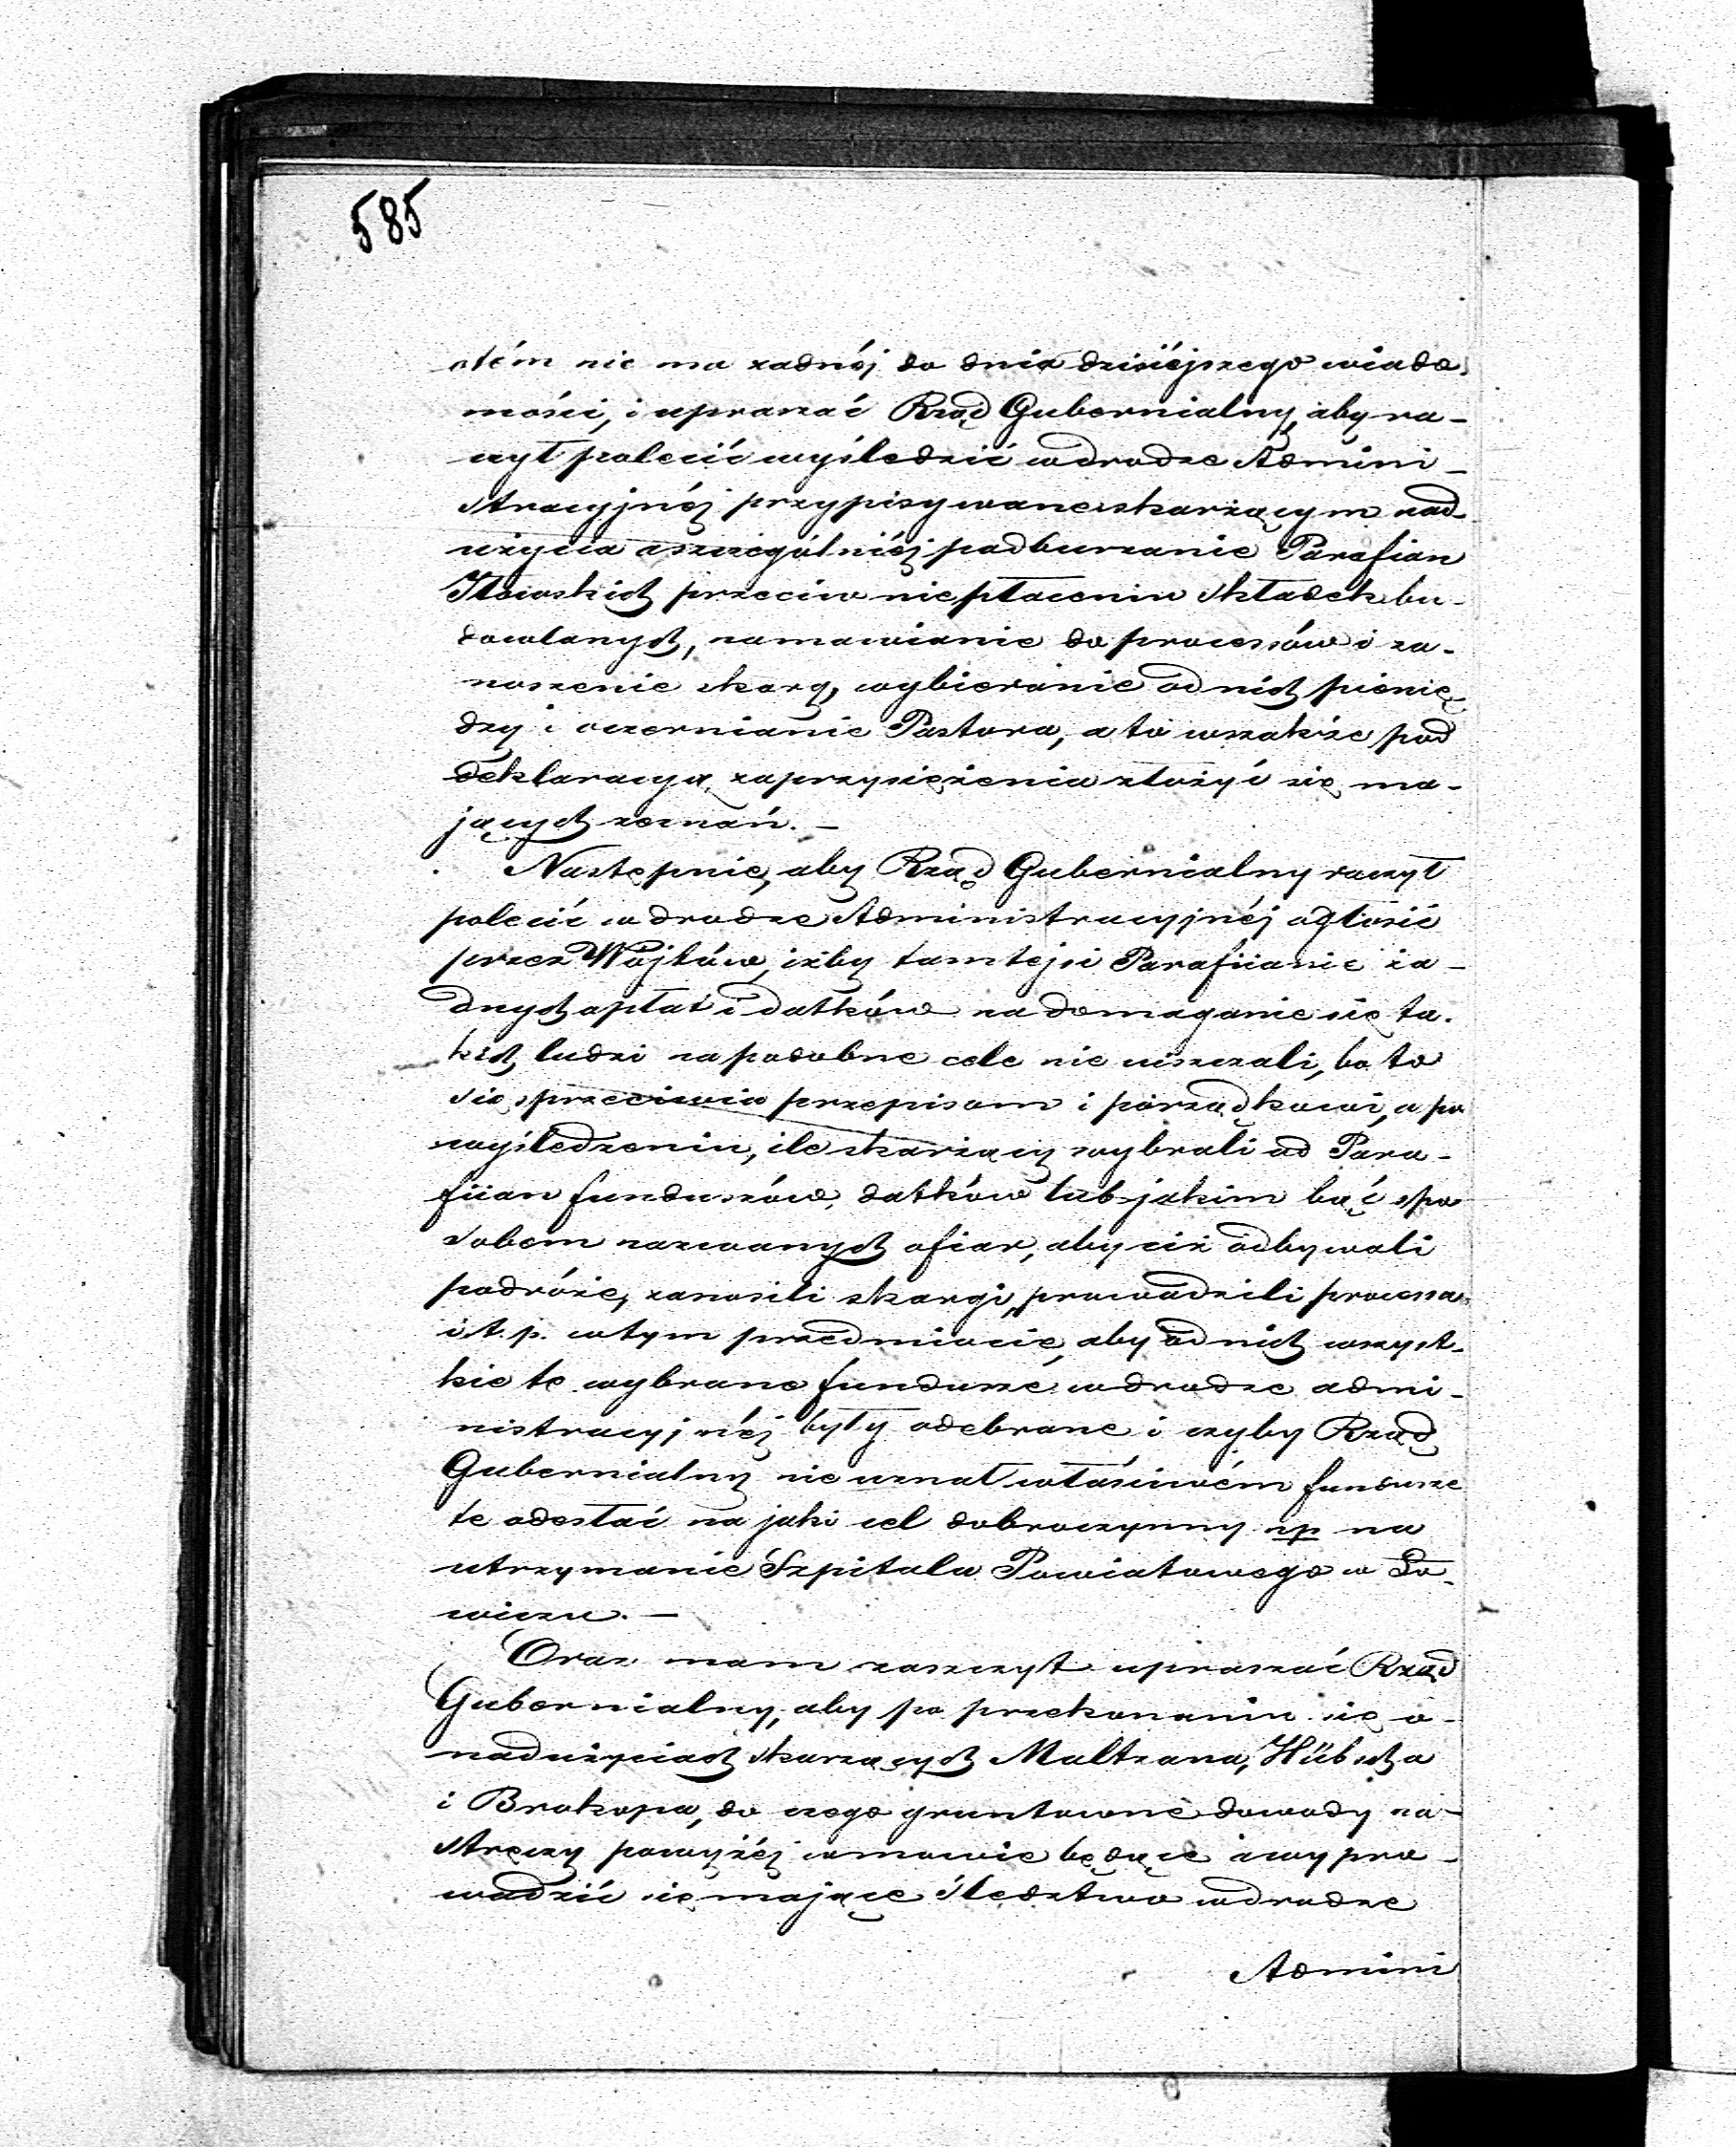 585
otém nie ma żadnéj do dnia dzisiéjszego wiado,
mości, i upraszać Rząd Gubernialny, aby ra-
czył polecić wyśledzić w drodze Admini-
stracyjnéj przypisywane skarżącym nad-
użycia a szczególniéj podburzanie Parafian
Iłowskich przeciw niepłaceniu składek bu-
dowlanych, namawianie do processów i za-
noszenie skarg, wybieranie od nich pienię
dzy i oczernianie Pastora, a to wszakże pod
deklaracyą zaprzysiężenia złożyć się ma-
jących zeznań. —
Następnie, aby Rząd Gubernialny raczył
polecić w drodze Administracyjnéj ogłosić
przez Wójtów, iżby tamtejsi Parafiianie ża-
dnych opłat i datków na domaganie się ta-
kich ludzi na podobne cele nie uiszczali, bo to
się sprzeciwia przepisom i porządkowi, a po
wyśledzeniu, ile skarżący wybrali od Para-
fiian funduszów, datków lub jakim bąć spo
sobem nazwanych ofiar, aby ciż odbywali
podróże, zanosili skargi, prowadzili processa
i t. p. w tym przedmiocie, aby od nich wszyst-
kie te wybrane fundusze w drodze admi-
nistracyjnéj były odebrane i czyby Rząd
Gubernialny nie uznał właściwém fundusze
te odesłać na jaki cel dobroczynny np na
utrzymanie Szpitala Powiatowego w Ło-
wiczu. —
Oraz mam zaszczyt upraszać Rząd
Gubernialny, aby po przekonaniu się o
nadużyciach skarżących Maltzana, Hübscha
i Brokopa, do czego gruntowne dowody na-
stręczy powyżéj w mowie będące i wypro-
wadzić się mające śledztwo w drodze
Admini